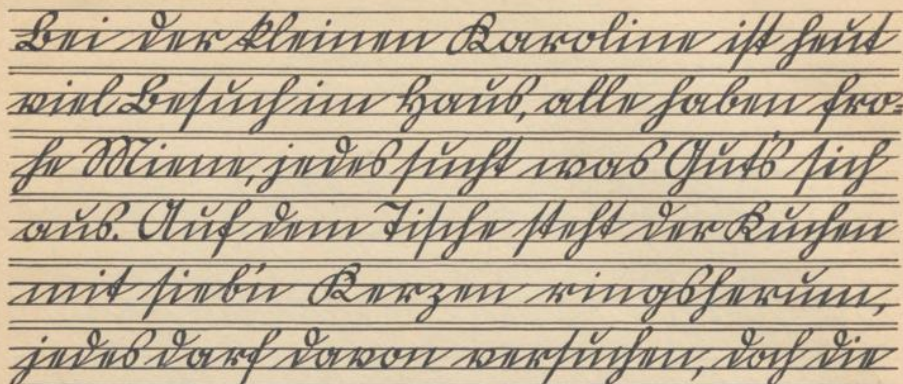 Bei der kleinen Karoline ist heut
viel Besuch im Haus, alle haben fro=
he Miene, jedes sucht was Gut's sich
aus. Auf dem Tische steht der Kuchen
mit sieb'n Kerzen ringsherum,
jedes darf davon versuchen, doch die